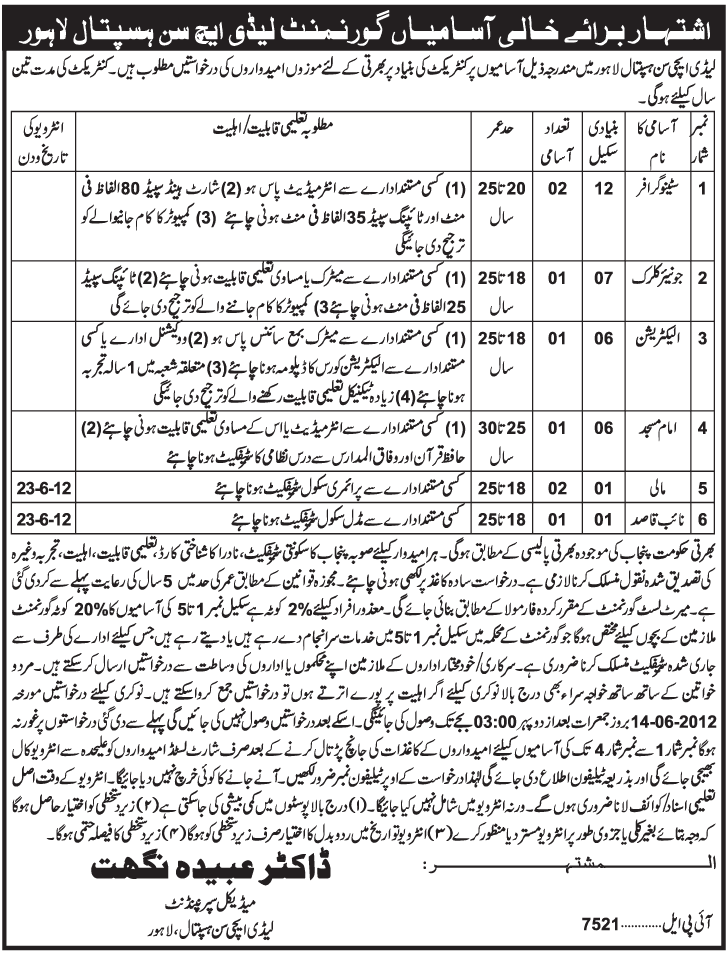 اشتہار برائے خالی آسامیاں گورنمنٹ لیڈی ایچ سن ہسپتال لاہور
لیڈی ایچی سن ہسپتال لاہور میں مندرجہ ذیل آسامیوں پر کنٹریکٹ کی بنیاد پر بھرتی کے لئے موزوں امیدواروں کی درخواستیں مطلوب ہیں۔ کنٹریکٹ کی مدت تین
سال کیلئے ہوگی۔
نمبر شمار آسامی کا نام بنیادی سکیل تعداد آسامی حد عمر مطلوبہ تعلیمی قابلیت / اہلیت انٹرویو کی تاریخ و دن
1 سٹینوگرافر 12 02 20 تا 25 سال (1) کسی مستند ادارے سے انٹرمیڈیٹ پاس ہو (2) شارٹ ہینڈ سپیڈ 80 الفاظ فی
منٹ اور ٹائپنگ سپیڈ 35 الفاظ فی منٹ ہونی چاہئے (3) کمپیوٹر کا کام جانیوالے کو
ترجیح دی جائیگی
2 جونیئر کلرک 07 01 18 تا 25 سال (1) کسی مستند ادارے سے میٹرک یا مساوی تعلیمی قابلیت ہونی چاہئے (2) ٹائپنگ سپیڈ
25 الفاظ فی منٹ ہونی چاہئے 3) کمپیوٹر کا کام جاننے والے کو ترجیح دی جائے گی
3 الیکٹریشن 06 01 18 تا 25 سال (1) کسی مستند ادارے سے میٹرک بمع سائنس پاس ہو (2) ووکیشنل ادارے یا کسی
مستند ادارے سے الیکٹریشن کورس کا ڈپلومہ ہونا چاہئے (3) متعلقہ شعبہ میں 1 سالہ تجربہ
ہونا چاہئے (4) زیادہ ٹیکنیکل تعلیمی قابلیت رکھنے والے کو ترجیح دی جائیگی
4 امام مسجد 06 01 25 تا 30 سال (1) کسی مستند ادارے سے انٹرمیڈیٹ یا اس کے مساوی تعلیمی قابلیت ہونی چاہئے (2)
حافظ قرآن اور وفاق المدارس سے درس نظامی کا سرٹیفکیٹ ہونا چاہئے
5 مالی 01 02 18 تا 25 کسی مستند ادارے سے پرائمری سکول سرٹیفکیٹ ہونا چاہئے 23-6-12
6 نائب قاصد 01 01 18 تا 25 کسی مستند ادارے سے مڈل سکول سرٹیفکیٹ ہونا چاہئے 23-6-12
بھرتی حکومت پنجاب کی موجودہ بھرتی پالیسی کے مطابق ہوگی۔ ہر امیدوار کیلئے صوبہ پنجاب کا سکونتی سرٹیفکیٹ، نادرا کا شناختی کارڈ، تعلیمی قابلیت، اہلیت، تجربہ وغیرہ
کی تصدیق شدہ نقول منسلک کرنا لازمی ہے۔ درخواست سادہ کاغذ پر لکھی ہونی چاہئے۔ مجوزہ قوانین کے مطابق عمر کی حد میں 5 سال کی رعایت پہلے سے کر دی گئی
ہے۔ میرٹ لسٹ گورنمنٹ کے مقرر کردہ فارمولا کے مطابق بنائی جائے گی۔ معذور افراد کیلئے 2% کوٹہ ہے سکیل نمبر 1 تا 5 کی آسامیوں کا 20% کوٹہ گورنمنٹ
ملازمین کے بچوں کیلئے مختص ہوگا جو گورنمنٹ کے محکمہ میں سکیل نمبر 1 تا 5 میں خدمات سرانجام دے رہے ہیں یا دیتے رہے ہیں جس کیلئے ادارے کی طرف سے
جاری شدہ سرٹیفکیٹ منسلک کرنا ضروری ہے۔ سرکاری / خود مختار اداروں کے ملازمین اپنے محکموں یا اداروں کی وساطت سے درخواستیں ارسال کر سکتے ہیں۔ مرد و
خواتین کے ساتھ ساتھ خواجہ سراء بھی درج بالا نوکری کیلئے اگر اہلیت پر پورے اترتے ہوں تو درخواستیں جمع کروا سکتے ہیں۔ نوکری کیلئے درخواستیں مورخہ
14-06-2012 بروز جمعرات بعد از دوپہر 03:00 بجے تک وصول کی جائیگی۔ اسکے بعد درخواستیں وصول نہیں کی جائیں گی پہلے سے دی گئی درخواستوں پر غور نہ
ہوگا نمبر شمار 1 سے نمبر شمار 4 تک کی آسامیوں کیلئے امیدواروں کے کاغذات کی جانچ پڑتال کرنے کے بعد صرف شارٹ لسٹڈ امیدواروں کو علیحدہ سے انٹرویو کال
بھیجی جائے گی اور بذریعہ ٹیلیفون اطلاع دی جائے گی لہٰذا درخواست کے اوپر ٹیلیفون نمبر ضرور لکھیں۔ آنے جانے کا کوئی خرچ نہیں دیا جائیگا۔ انٹرویو کے وقت اصل
تعلیمی اسناد / کوائف لانا ضروری ہوں گے۔ ورنہ انٹرویو میں شامل نہیں کیا جائیگا۔ (۱) درج بالا پوسٹوں میں کمی بیشی کی جاسکتی ہے (۲) زیر دستخطی کو اختیار حاصل ہوگا
کہ وجہ بتائے بغیر کلی یا جزوی طور پر انٹرویو مسترد یا منظور کرے (۳) انٹرویو تواریخ میں ردوبدل کا اختیار صرف زیر دستخطی کو ہوگا (۴) زیر دستخطی کا فیصلہ حتمی ہوگا۔
المشتہر:
ڈاکٹر عبیدہ نگہت
میڈیکل سپرنٹنڈنٹ
لیڈی ایچی سن ہسپتال، لاہور
آئی پی ایل............7521